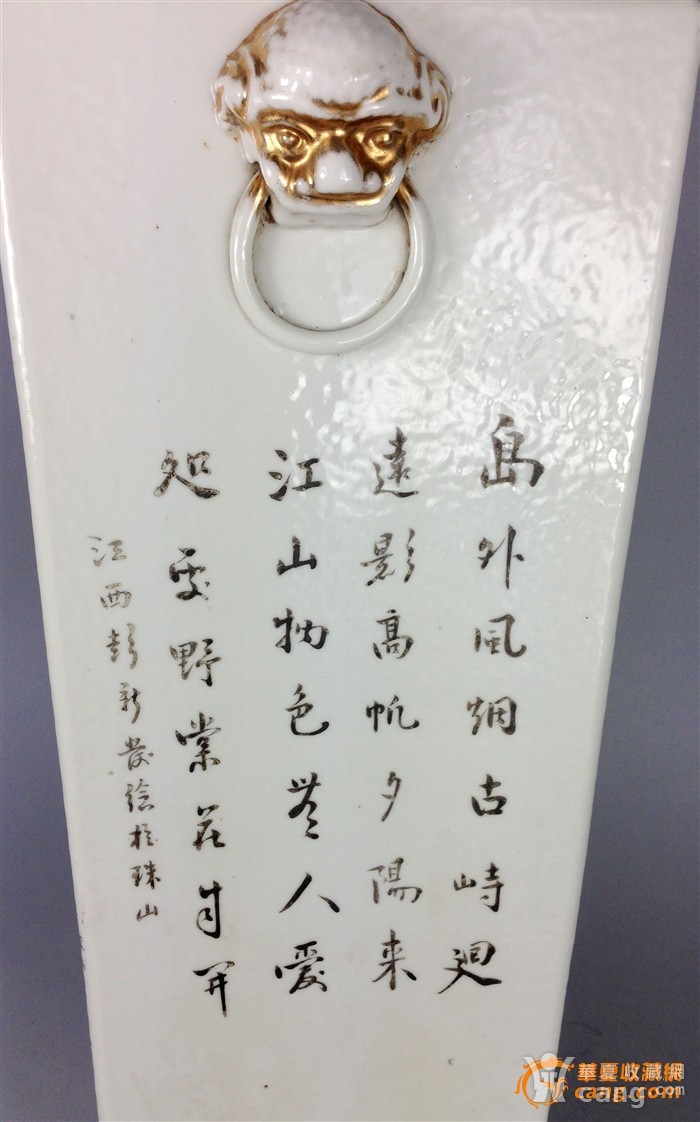 島外風烟古峙廻
遠影髙帆夕陽来
江山物色無人愛
处處野棠花自開
江西彭新發繪於珠山
華夏收藏網
cang.com